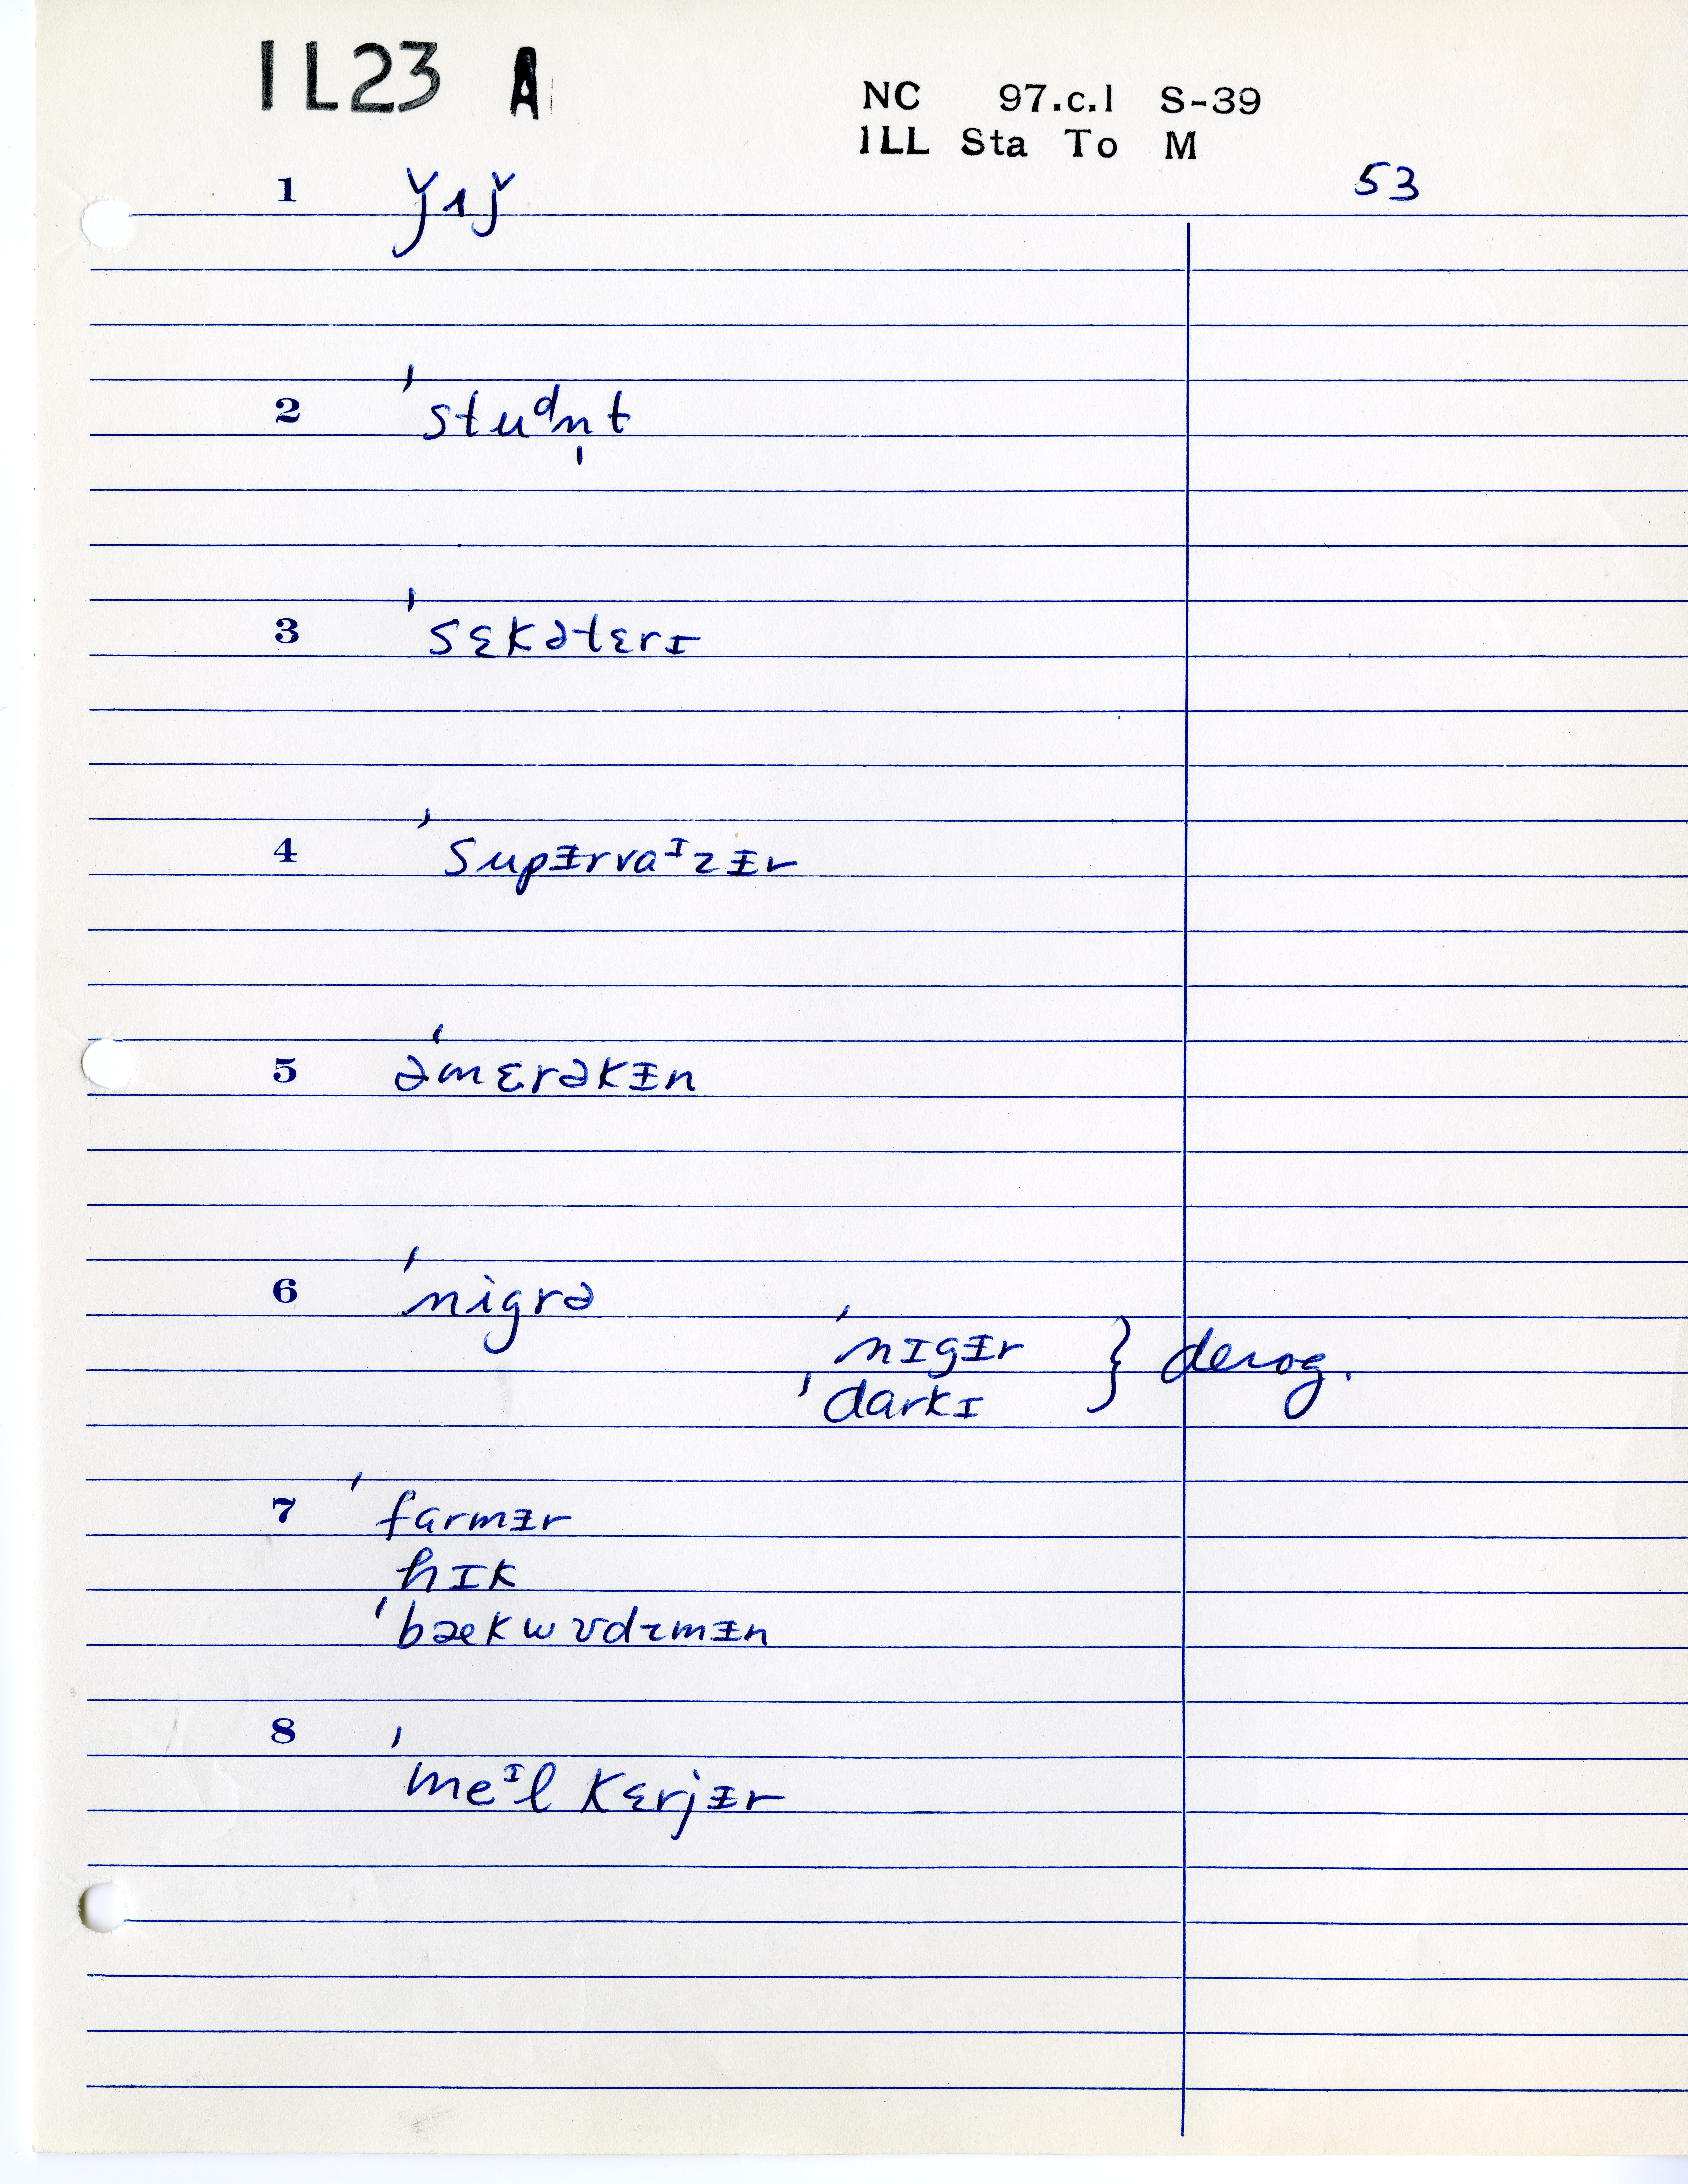 IL23 A
NC 97.c.1 S-39
ILL Sta To M
53
1 ǰʌǰ
2 ˈstuᵈn̩t
3 ˈsɛkətɛrɪ
4 ˈsupᵻrvaᶦzᵻr
5 əˈmɛrəkᵻn
6 ˈnigrə
ˈnɪgᵻr } derog.
ˈdarkɪ
7 ˈfarmᵻr
hɪk
ˈbækwʊdzmᵻn
8 ˈmeᶦl kɛrjᵻr